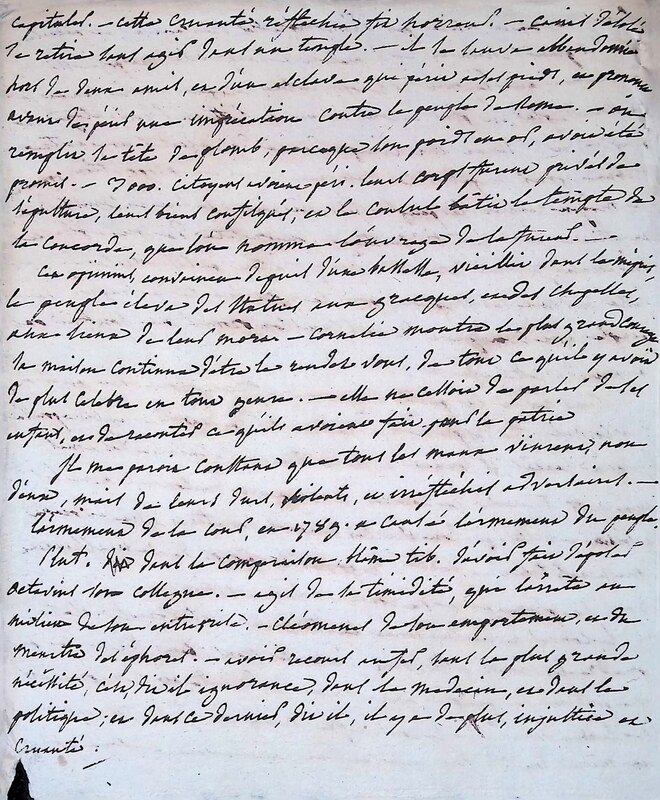 capitales. – cette cruauté réfléchie fit horreur. – Caius désolé
se retire sans agir dans un temple. – il se sauve abbandonné
hors de deux amis, et d'un esclave qui périt à ses pieds, en prononc
avant de périr une imprécation contre le peuple de Rome. – on
remplit sa tête de plomb, parceque son poids en or, avoit été
promis. – 3000. citoyens avoient péri. leurs corps furent privés de
sépulture, leurs biens confisqués; et le consul bâtit le temple de
la concorde, que l'on nomma l'ouvrage de la fureur. –
Cet opimius, convaincu depuis d'une bassesse, vieillit dans le mépris,
le peuple éleva des statues aux gracques, et des chapelles,
aux lieux de leur mort – Cornélie montra le plus grand courage
sa maison continua d'être le rendez vous, de tout ce qu'il y avoit
de plus célèbre en tout genre. – elle ne cessoit de parler de ses
enfans, et de raconter ce qu'ils avoient fait pour la patrie
Il me paroit constant que tous les maux vinrent, non
d'eux, mais de leurs durs, violents, et irréfléchis adversaires. –
l'armement de la cour, en 1789. a causé l'armement du peuple.
Plut. dans la comparaison blâme tib. d'avoir fait déposer
octavius son collegue. – agis de sa timidité, qui l'arrêta au
milieu de son entreprise. – Cléomenes de son emportement, et du
meurtre des éphores. – avoir recours au fer, sans la plus grande
nécessité, c'est, dit il ignorance, dans la médecine, et dans la
politique; et dans ce dernier, dit il, il y a de plus, injustice et
cruauté.